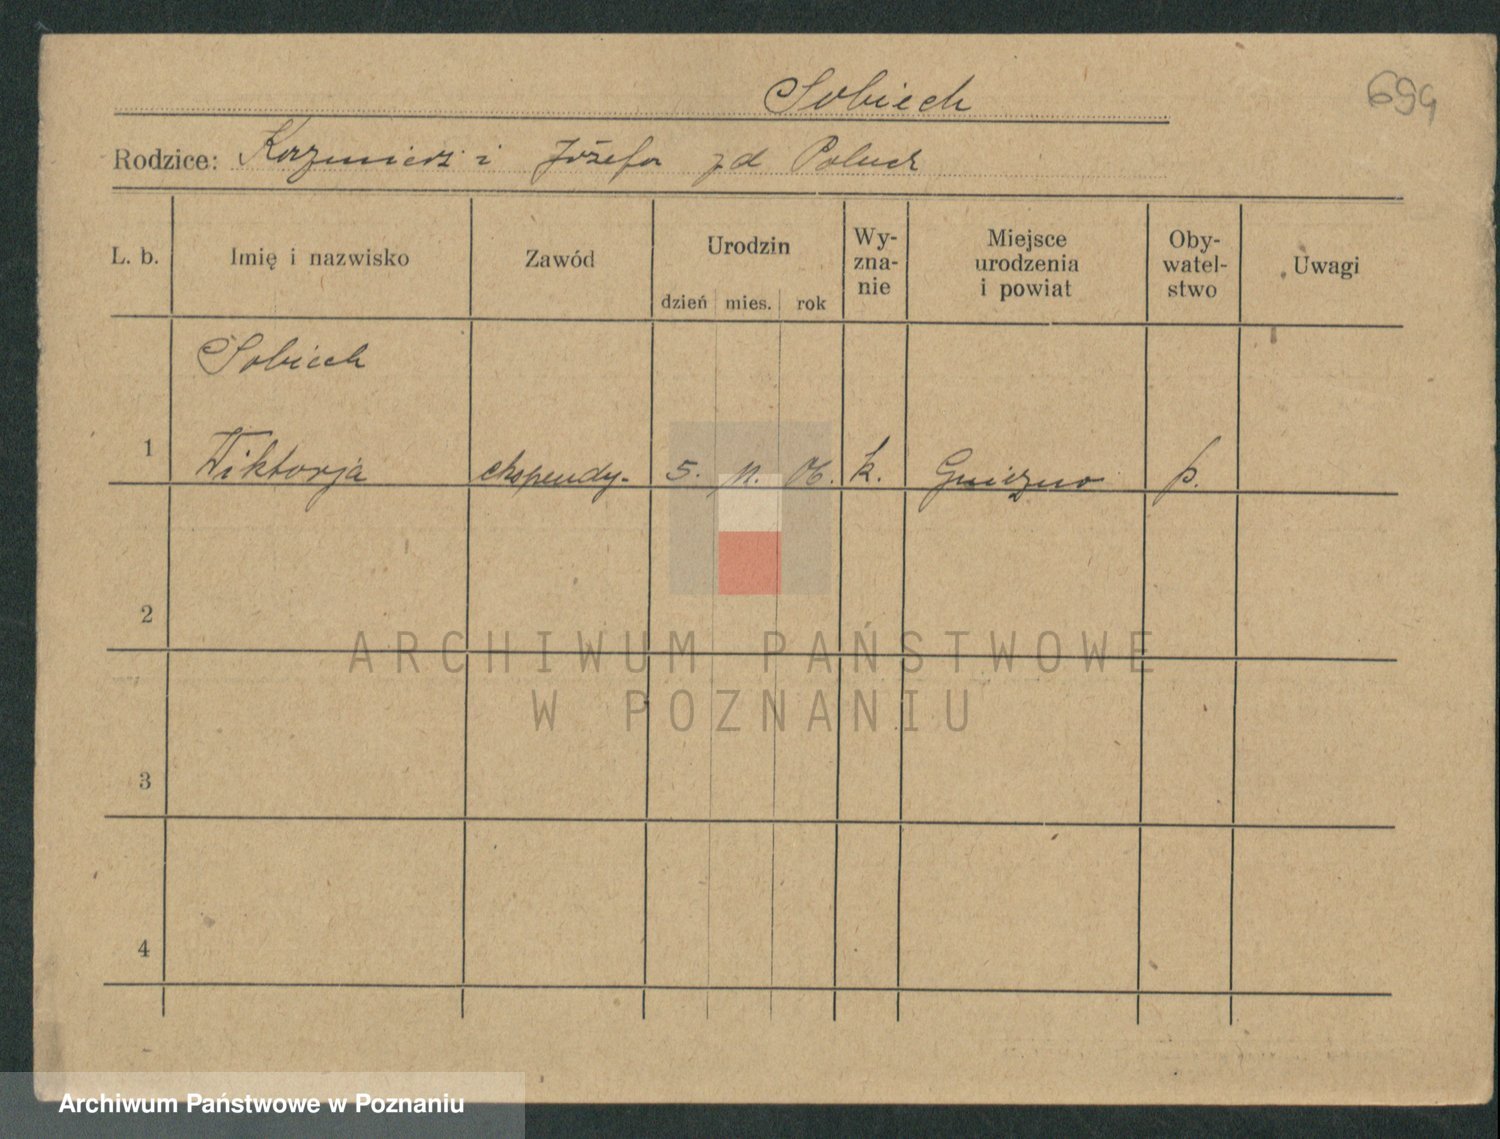 Sobiech
699
Rodzice: Kazimierz i Józefa zd Paluch
L. b.
Imię i nazwisko
Zawód
Urodzin
dzień mies. rok
Wy-
zna-
nie
Miejsce
urodzenia
i powiat
Oby-
watel-
stwo
Uwagi
Sobiech
1 Wiktorja ekspendy- 5. 11. 06. k. Gniezno p.
2
3
4
ARCHIWUM PAŃSTWOWE
W POZNANIU
Archiwum Państwowe w Poznaniu